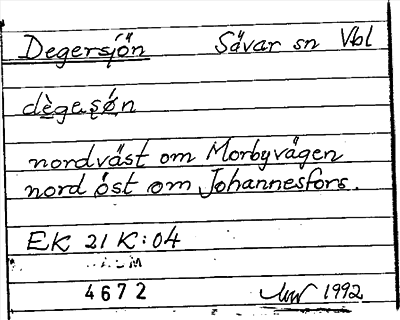 Degersjön Sävar sn Vbl
dègeşǿn
nordväst om Morbyvägen
nord öst om Johannesfors.
EK 21 K:04
4672 1992